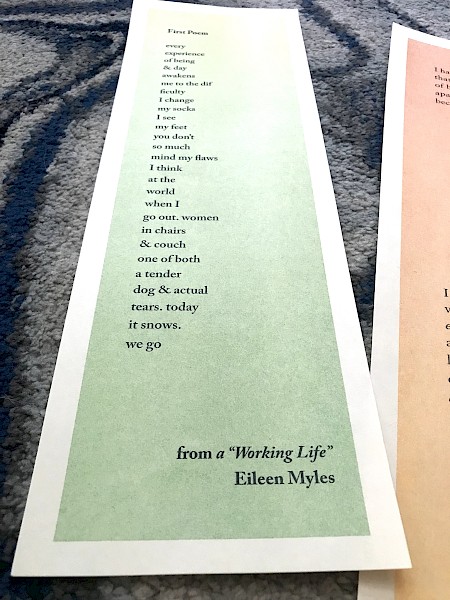 First Poem
every
experience
of being
& day
awakens
me to the dif
ficulty
I change
my socks
I see
my feet
you don't
so much
mind my flaws
I think
at the
world
when I
go out. women
in chairs
& couch
one of both
a tender
dog & actual
tears. today
it snows.
we go
from a "Working Life"
Eileen Myles
I ha
that
of b
apa
bec